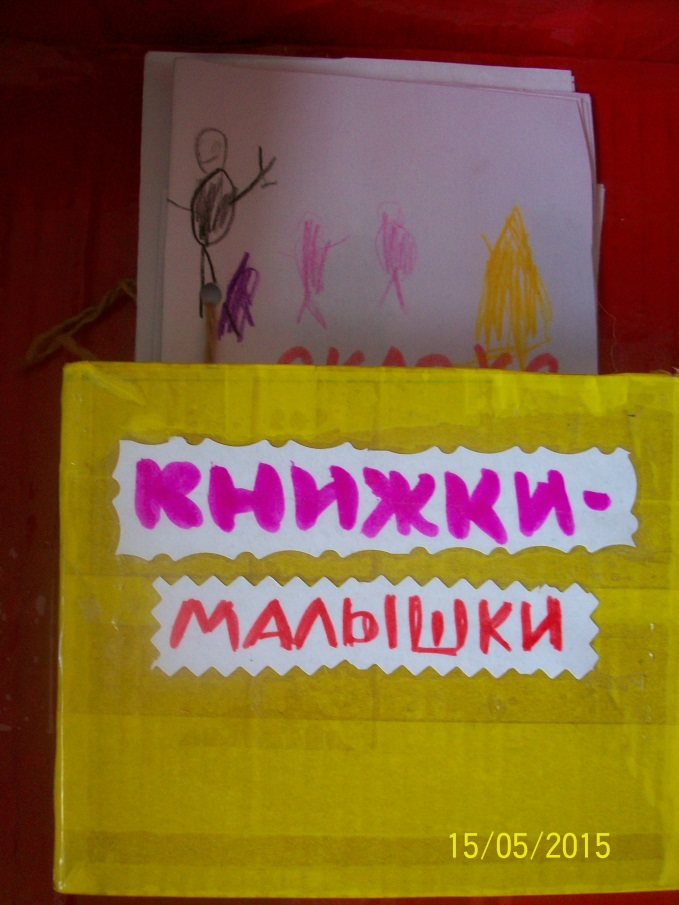 КНИЖКИ-
МАЛЫШКИ
15/05/2015